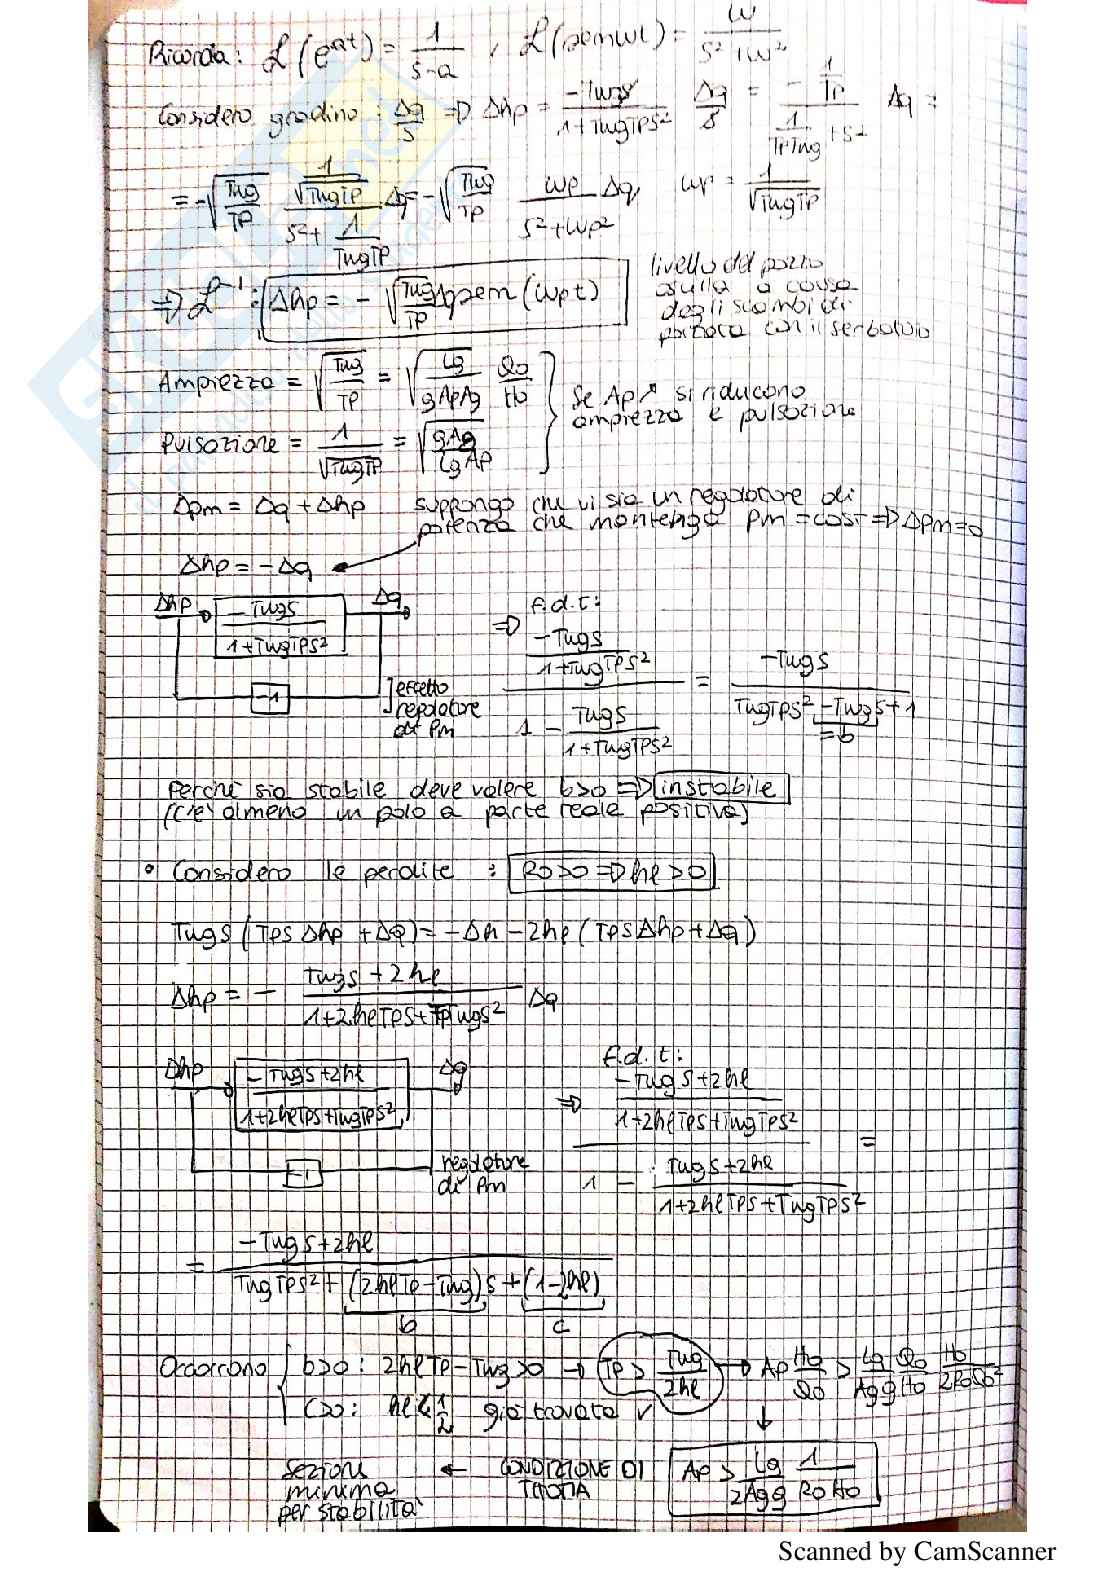 Ricorda: ℒ(e^at) = 1/(s-a) , ℒ(senωt) = ω/(s²+ω²)
Considero gradino: Δq/s ⇒ Δhp = -Twgs/(1+TwgTps²) Δq/s = -(1/Tp)/(1/(TpTwg)+s²) Δq =
= -√(Twg/Tp) (1/√(TwgTp))/(s²+1/(TwgTp)) Δq = -√(Twg/Tp) ωp/(s²+ωp²) Δq, ωp = 1/√(TwgTp)
⇒ ℒ⁻¹: Δhp = -√(Twg/Tp) Δq sen(ωpt)
livello del pozzo
oscilla a causa
degli scambi di
portata con il serbatoio
Ampiezza = √(Twg/Tp) = √(Lg/(gApAg)) Qo/Ho
Pulsazione = 1/√(TwgTp) = √(gAg/(LgAp))
Se Ap↗ si riducono
ampiezza e pulsazione
Δpm = Δq + Δhp suppongo che vi sia un regolatore di
potenza che mantenga pm = cost ⇒ Δpm=0
Δhp = -Δq
Δhp -Twgs/(1+TwgTps²) Δq
-1
effetto
regolatore
di Pm
⇒ f.d.t:
(-Twgs/(1+TwgTps²))/(1 - Twgs/(1+TwgTps²)) = -Twgs/(TwgTps² -Twgs+1)
=b
Perché sia stabile deve valere b>0 ⇒ instabile
(c'è almeno un polo a parte reale positiva)
• Considero le perdite : Ro>0 ⇒ hl>0
Twgs(TpsΔhp + ΔQ) = -Δh - 2hl(TpsΔhp+Δq)
Δhp = - (Twgs+2hl)/(1+2hlTps+TpTwgs²) Δq
Δhp (-Twgs+2hl)/(1+2hlTps+TwgTps²) Δq
-1
regolatore
di Pm
⇒ f.d.t:
((-Twgs+2hl)/(1+2hlTps+TwgTps²))/(1 - (Twgs+2hl)/(1+2hlTps+TwgTps²)) =
= (-Twgs+2hl)/(TwgTps²+(2hlTp-Twg)s+(1-2hl))
b c
Occorrono { b>0: 2hlTp-Twg>0 → Tp > Twg/2hl → Ap Ho/Qo > Lg/(Agg) Qo/Ho Ho/(2RoQo²)
c>0: hl<1/2 già trovata ✓
↓
Sezione
minima
per stabilità
← CONDIZIONE DI
THOMA
Ap > Lg/(2Agg) 1/(RoHo)
Scanned by CamScanner